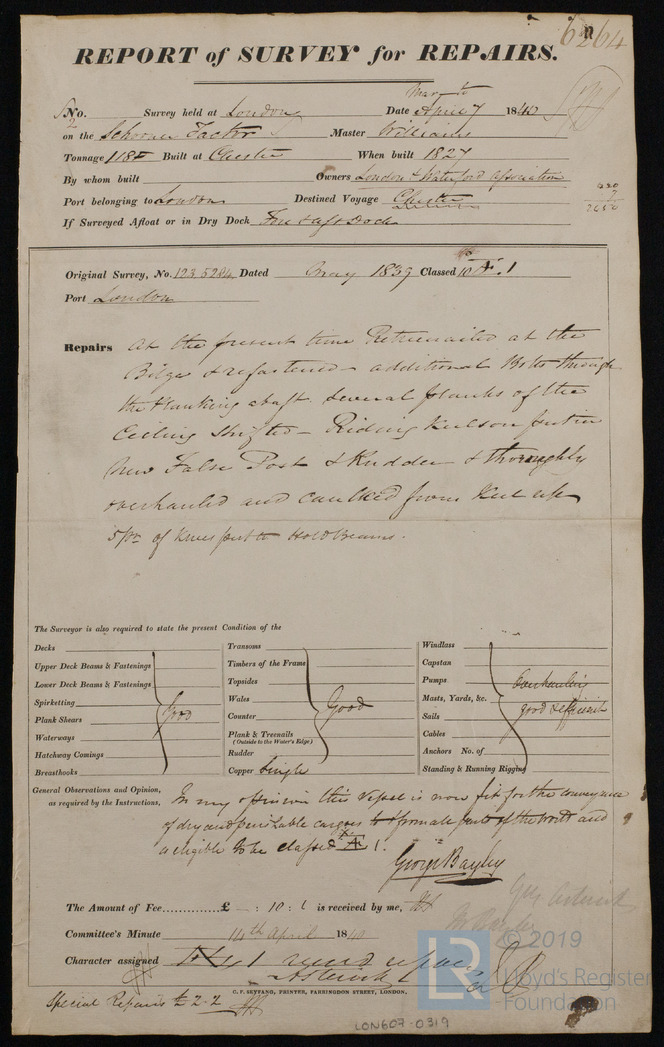 6264
REPORT of SURVEY for REPAIRS.
No. Survey held at London Date April 7 1840
2
on the Schooner Factor Master Williams
Tonnage 118 Built at Chester When built 1827
By whom built Owners London & Waterford Association
Port belonging to London Destined Voyage Chester
If Surveyed Afloat or in Dry Dock Fore & aft Dock
Original Survey, No. Dated May 1839 Classed 1
Port London
Repairs At the present time Retrenailed at the
Bilge & refastened additional Bolts through
the Planking abaft Several planks of the
Ceiling shifted - Riding Keelson put in
New False Post & Rudder & thoroughly
overhauled and caulked from Keel up
5 pr of Knees put to Hold Beams.
The Surveyor is also required to state the present Condition of the
Decks
Upper Deck Beams & Fastenings
Lower Deck Beams & Fastenings
Spirketting
Plank Shears Good
Waterways
Hatchway Comings
Breasthooks
Transoms
Timbers of the Frame
Topsides
Wales
Counter Good
Plank & Treenails
(Outside to the Water's Edge)
Rudder
Copper Single
Windlass
Capstan
Pumps Overhauling
Masts, Yards, &c.
Sails good & efficient
Cables
Anchors No. of
Standing & Running Rigging
General Observations and Opinion,
as required by the Instructions,
In my opinion this Vessel is now fit for the conveyance
of dry and perishable cargoes to & from all parts of the world and
is eligible to be classed Æ 1.
George Bayley
The Amount of Fee £ - : 10 : is received by me,
Committee's Minute 14th April 1840
Character assigned
C. F. SEYFANG, PRINTER, FARRINGDON STREET, LONDON,
Special Repairs
LON607-0319
LR
© 2019
Lloyd's Register
Foundation